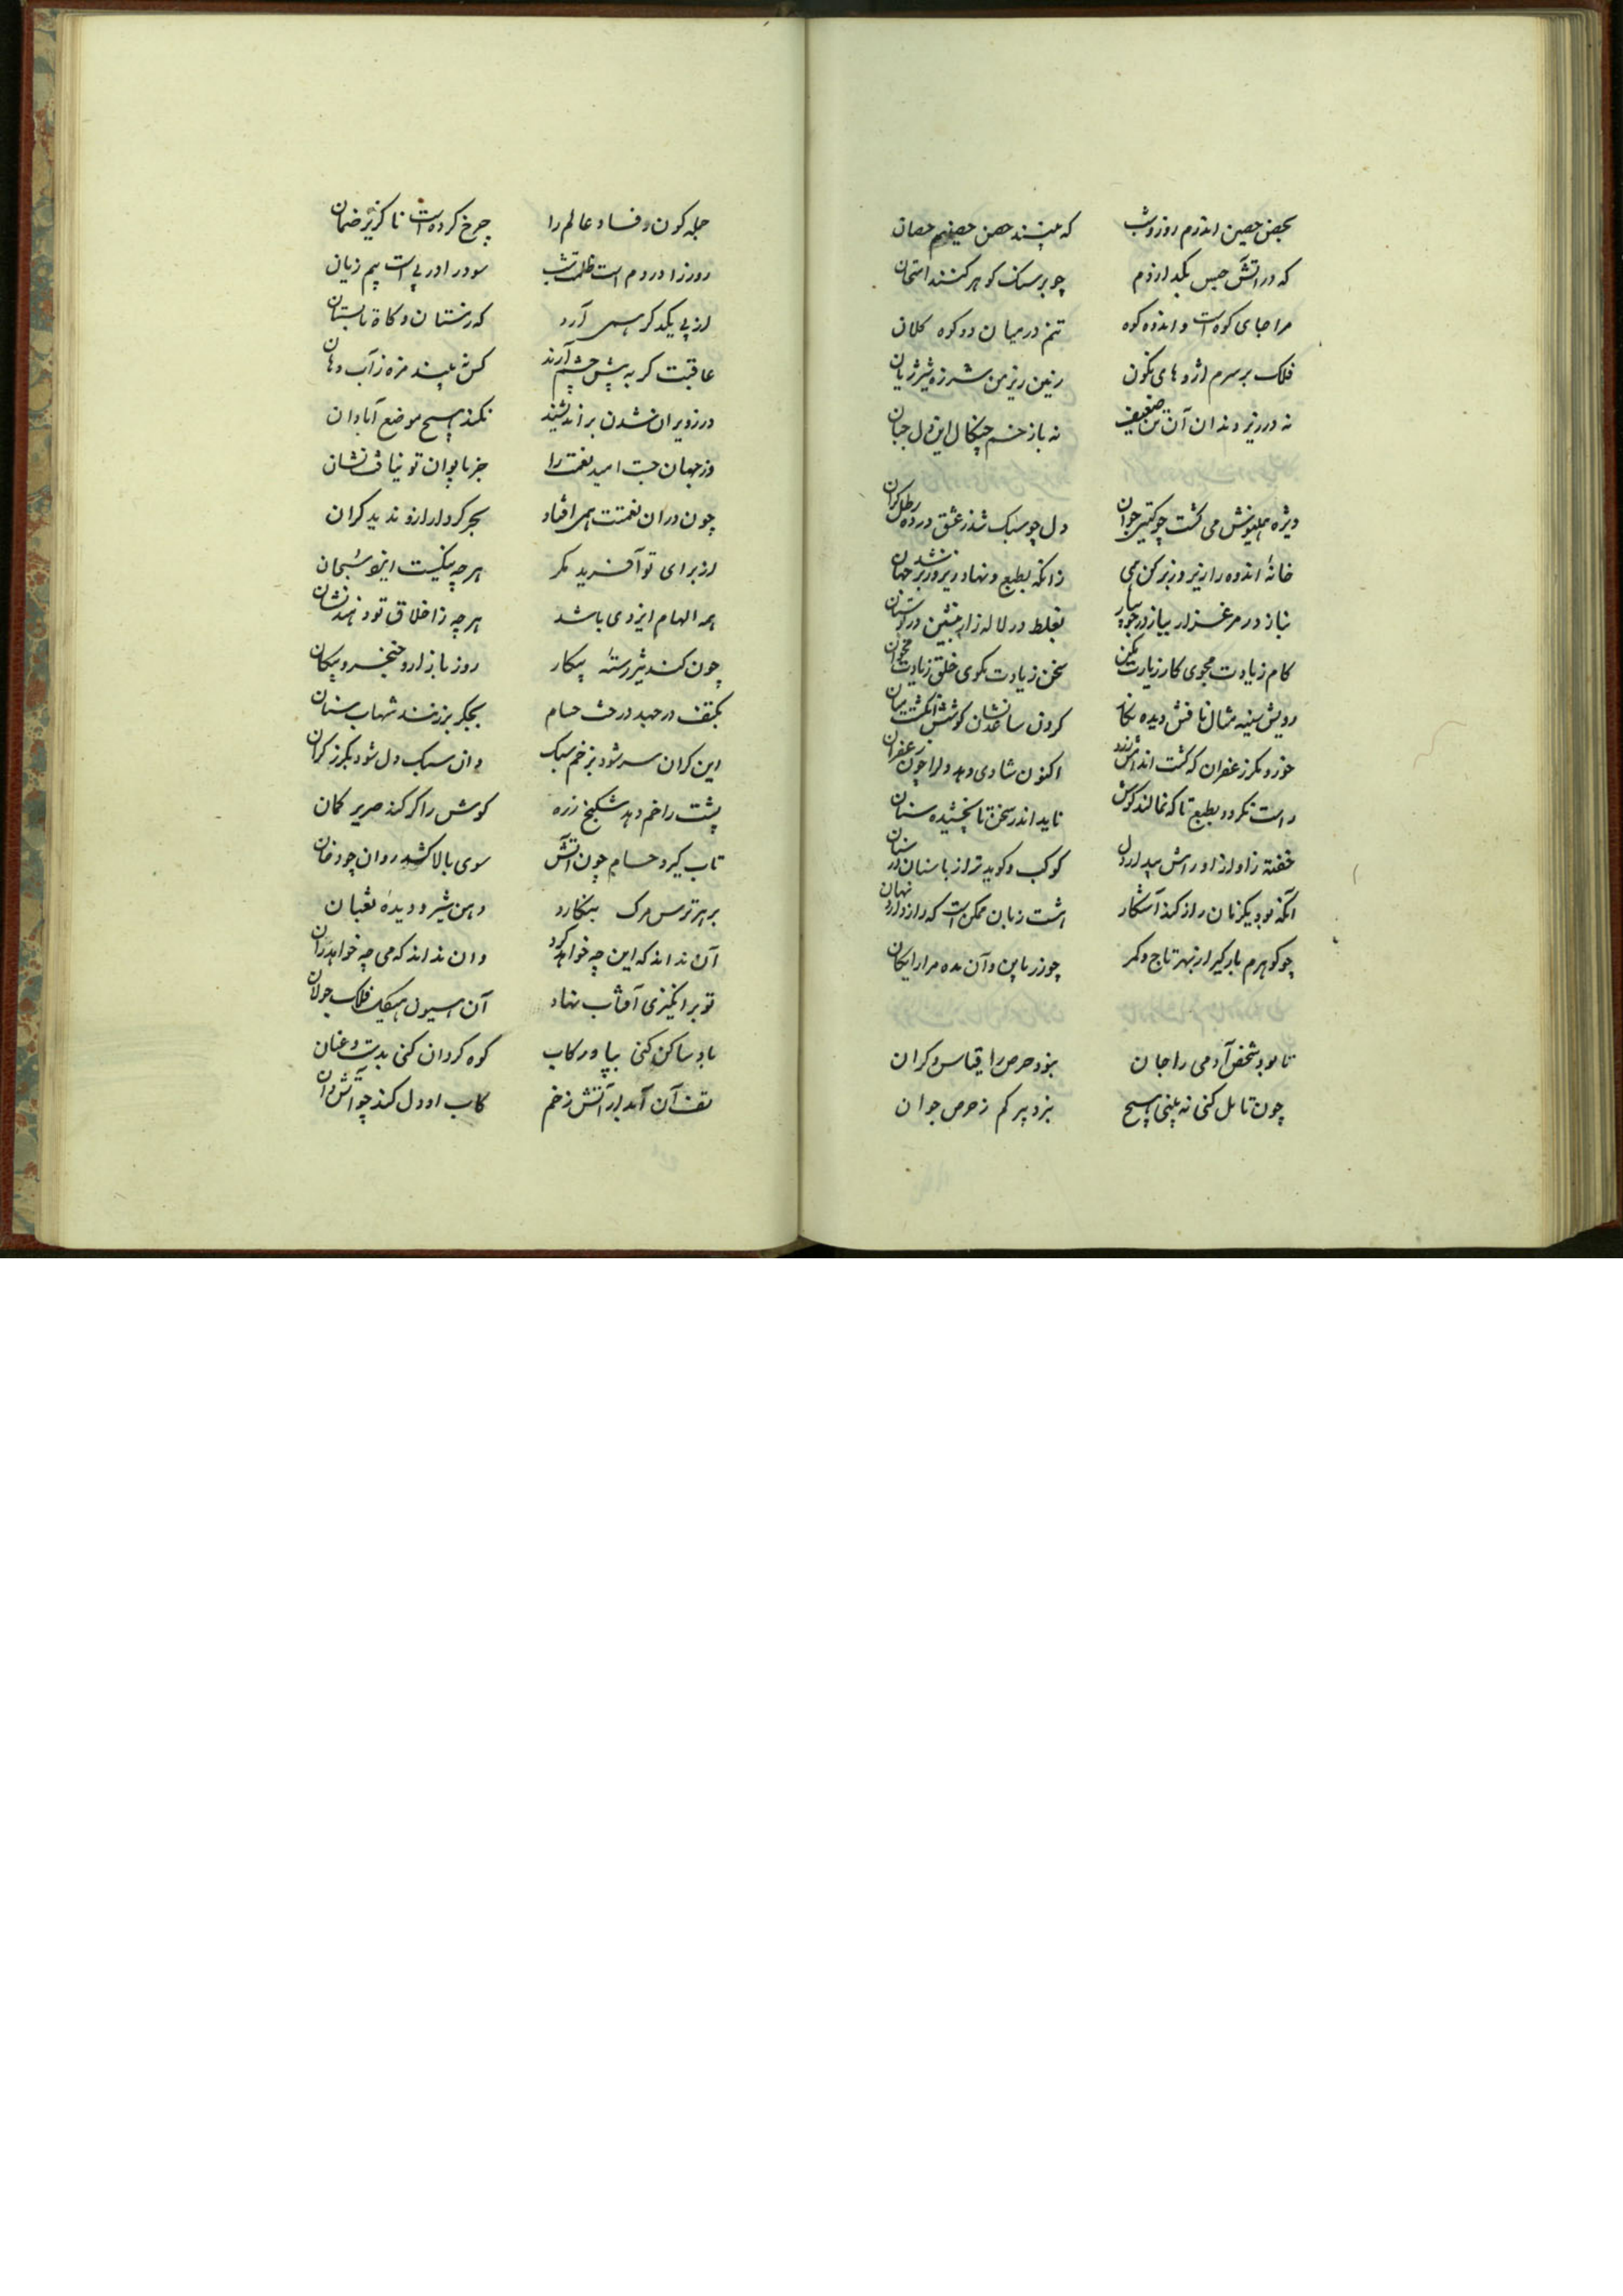 بحصن حصین اندرم روز و شب که بپسند حصن حصینم حصان
که در آتش حبس بگدازدم چو بر سنک کوهر کنند امتحان
مرا جای کوه است و اندوه کوه تنم در میان دو کوه کلان
فلک بر سرم اژدهای نکون زمین زیر من شرزه شیر ژیان
نه در زیر دندان آن تن ضعیف نه با زخم چنکال این دل جبان
ویژه می کشت چو کیتی جوان دل چو سبک شد ز عشق در ده رطل کران
خانهٔ اندوه را زیر و زبر کن همی زانکه بطبع و نهاد زیر و زبر شد جهان
بناز در مرغزار بیاز در جویبار بغلط در لاله زار بنشین در بوستان
کام زیادت مجوی کار زیارت مکن سخن زیادت مکوی خلق زیادت مخوان
رویش سینه مثال نافش دیده نکار کردن ساعد نشان کوشش انکشت سان
خورد مکر زعفران که کشت اندامش زرد اکنون شادی دهد دلرا چون زعفران
راست نکردد بطبع تا که نمالند کوش ناید اندر سخن تا نچشیده سنان
خفته زاو راز او رامش بیدار دل کوکب و کوید تراز با سنان در سنان
آنکه بود یکزبان راز کند آشکار هشت زبان ممکن است که راز دارد نهان
چو کوهرم بار کیر از بهر تاج و کمر چو زر باین و آن مده مرا رایکان
تا بود شخص آدمی را جان بزود حرص را قیاس و کران
چون تامل کنی نه بینی هیچ بزد پیر کم ز حرص جوان
جمله کون و فساد عالم را چرخ کرده است ناکزیر ضمان
روز را در دم است ظلمت شب سود را در پی است بیم زیان
از پی یکدکر همی آرد که زمستان و کاه تابستان
عاقبت کر به پیش چشم آرند کس نه بیند مزه ز آب دهان
ور ز ویران شدن براندیشند نکند هیچ موضع آبادان
وز جهان جست امید نعمت را جز بایوان تو نیافت نشان
چون در آن نعمتت همی افتاد بحر کردار ازو ندید کران
از برای تو آفرید مکر هر چه نیکیست ایزد سبحان
همه الهام ایزدی باشد هر چه ز اخلاق تو دهند نشان
چون کند تیز رستهٔ پیکار روز بازار و خنجر و پیکان
بکتف در جهد درخت حسام بجکر بر زنند شهاب سنان
این کران سر شود بزخم سبک وان سبک دل شود بکرز کران
پشت را خم دهد شکنج زره کوش را کر کند صریر کمان
تاب کیرد حسام چون آتش سوی بالا کشد روان چو دخان
بر هر ترس مرک بنکارد دهن شیر و دیدهٔ ثعبان
آن نداند که این چه خواهد کرد وان نداند که می چه خواهد ران
تو برانکیزی آفتاب نهاد آن هیون هیکل فلک جولان
باد ساکن کنی بپا و رکاب کوه کردان کنی بدست و عنان
تف آن آبدار آتش زخم کاب او دل کند چو آتش دان